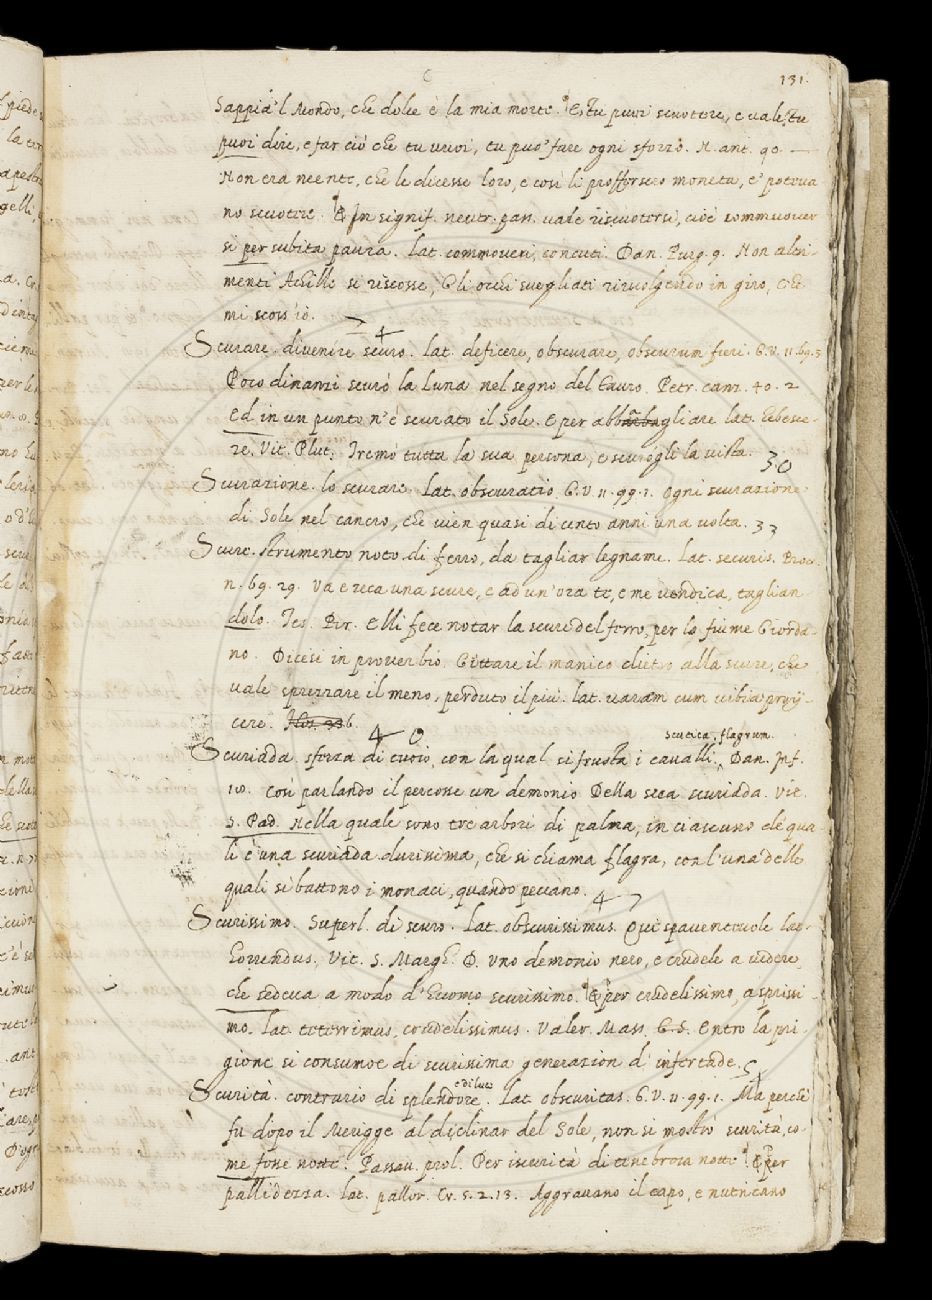 C
131
Sappia 'l Mondo, che dolce è la mia morte. E, tu puoi scuotere, e vale, tu
puoi dire, e far ciò che tu vuoi, tu puo' fare ogni sforzo. N. ant. 90.
Non era neente, che le dicesse loro, e così li proffersero moneta, e' poteva
no scuotere. E In signif. neutr. pass. vale riscuotersi, cioè commuover
si per subita paura. Lat. commoveri, concuti. Dan. Purg. 9. Non altri-
menti Achille si riscosse, Gli occhi svegliati rivolgendo in giro, Che
mi scoss' io.
24
Scurare. divenire scuro. Lat. deficere, obscurare, obscurum fieri. G.V. 11. 69. 3
Poco dinanzi scurò la Luna nel segno del Tauro. Petr. canz. 40. 2
Ed in un punto n' è scurato il Sole. E per abbarbagliare lat. hebesce-
re. Vit. Plut. Tremò tutta la sua persona, e scurogli la vista.
30
Scurazione. lo scurare. Lat. obscuratio. G.V. 11. 99. 1. Ogni scurazione
di Sole nel cancro, che vien quasi di cento anni una volta.
33
Scure. strumento noto di ferro, da tagliar legname. Lat. securis. Bocc.
n. 69. 29. Va e reca una scure, e ad un' ora te, e me vendica, taglian
dolo. Tes. Br. Elli fece notar la scure del ferro, per lo fiume Giorda-
no. Dicesi in proverbio. Gittare il manico dietro alla scure, che
vale sprezzare il meno, perduto il più. lat. varam cum vibia proij-
cere.
40
scutica, flagrum.
Scuriada sforza di cuoio, con la qual si frusta i cavalli. Dan. Inf.
18. Così parlando il percosse un demonio Della sua scuriada. Vit.
S. Pad. Nella quale sono tre arbori di palma, in ciascuno de' qua
li è una scuriada durissima, che si chiama flagra, con l' una delle
quali si battono i monaci, quando peccano.
47
Scurissimo. Superl. di scuro. Lat. obscurissimus. Qui spaventevole lat.
horrendus. Vit. S. Margh. D. Uno demonio nero, e crudele a vedere,
che sedeva a modo d' Huomo scurissimo. E per crudelissimo, asprissi-
mo. Lat. teterrimus, crudelissimus. Valer. Mass. G. S. Entro la pri-
gione si consumoe di scurissima generazion d' infertade.
54
e di luce
Scurità. contrario di splendore. Lat. obscuritas. G.V. 11. 99. 1. Ma perchè
fu dopo il Merigge al diclinar del Sole, non si mostrò scurità, co-
me fosse notte. Passav. prol. Per iscurità di tenebrosa notte. E per
pallidezza. Lat. pallor. Cr. 5. 2. 13. Aggravano il capo, e nutricano